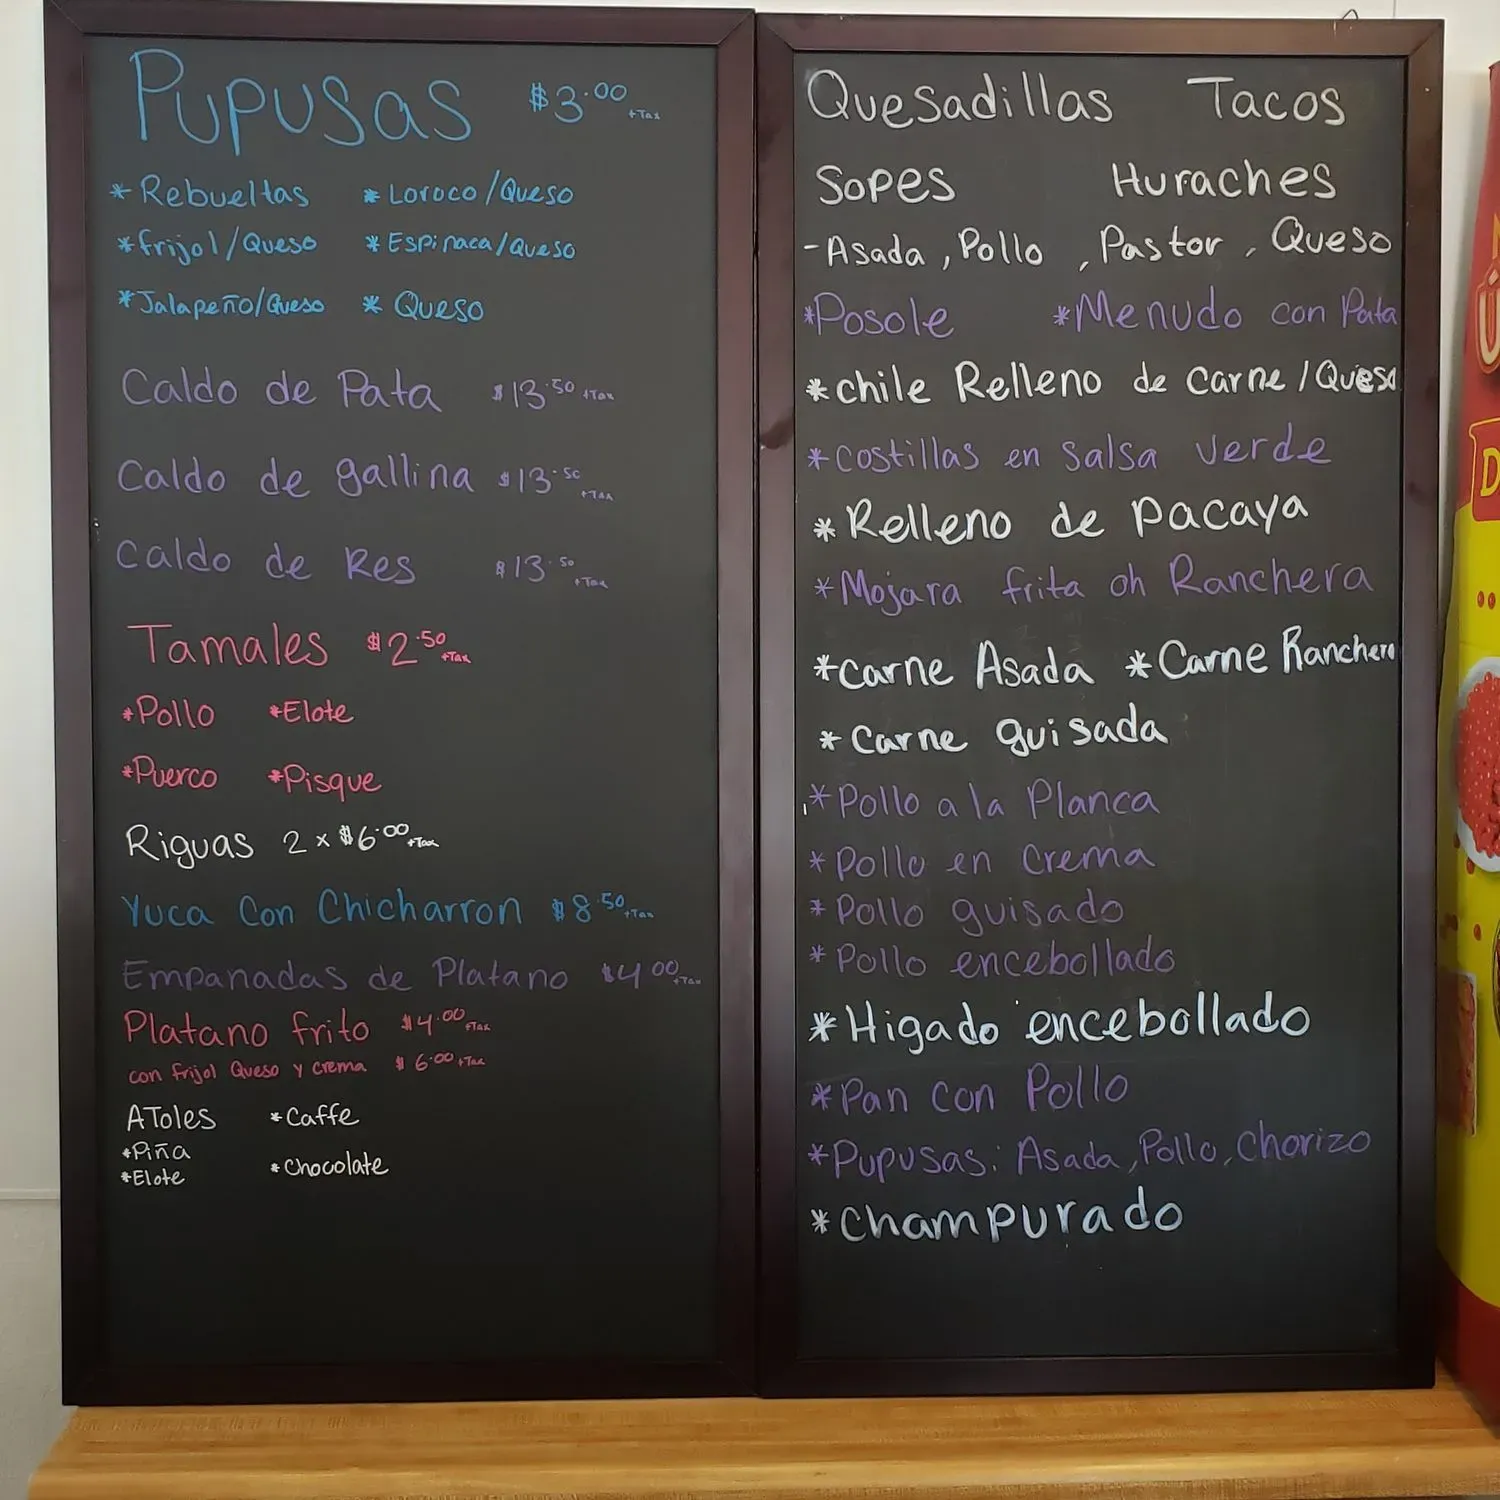 Pupusas $3.00 +Tax
* Rebueltas * Loroco/Queso
* frijol/Queso * Espinaca/Queso
* Jalapeño/Queso * Queso
Caldo de Pata $13.50 +Tax
Caldo de gallina $13.50 +Tax
Caldo de Res $13.50 +Tax
Tamales $2.50 +Tax
*Pollo *Elote
*Puerco *Pisque
Riguas 2 x $6.00 +Tax
Yuca Con Chicharron $8.50 +Tax
Empanadas de Platano $4.00 +Tax
Platano frito $4.00 +Tax
con frijol Queso y crema $6.00 +Tax
AToles *Caffe
*Piña
*Elote *Chocolate
Quesadillas Tacos
Sopes Huraches
-Asada, Pollo, Pastor, Queso
*Posole *Menudo con Pata
*chile Relleno de carne/Queso
*costillas en salsa verde
*Relleno de pacaya
*Mojara frita oh Ranchera
*carne Asada *Carne Ranchera
*carne guisada
*Pollo a la Planca
*Pollo en Crema
*Pollo guisado
*Pollo encebollado
*Higado encebollado
*Pan con Pollo
*Pupusas: Asada, Pollo, Chorizo
*champurado